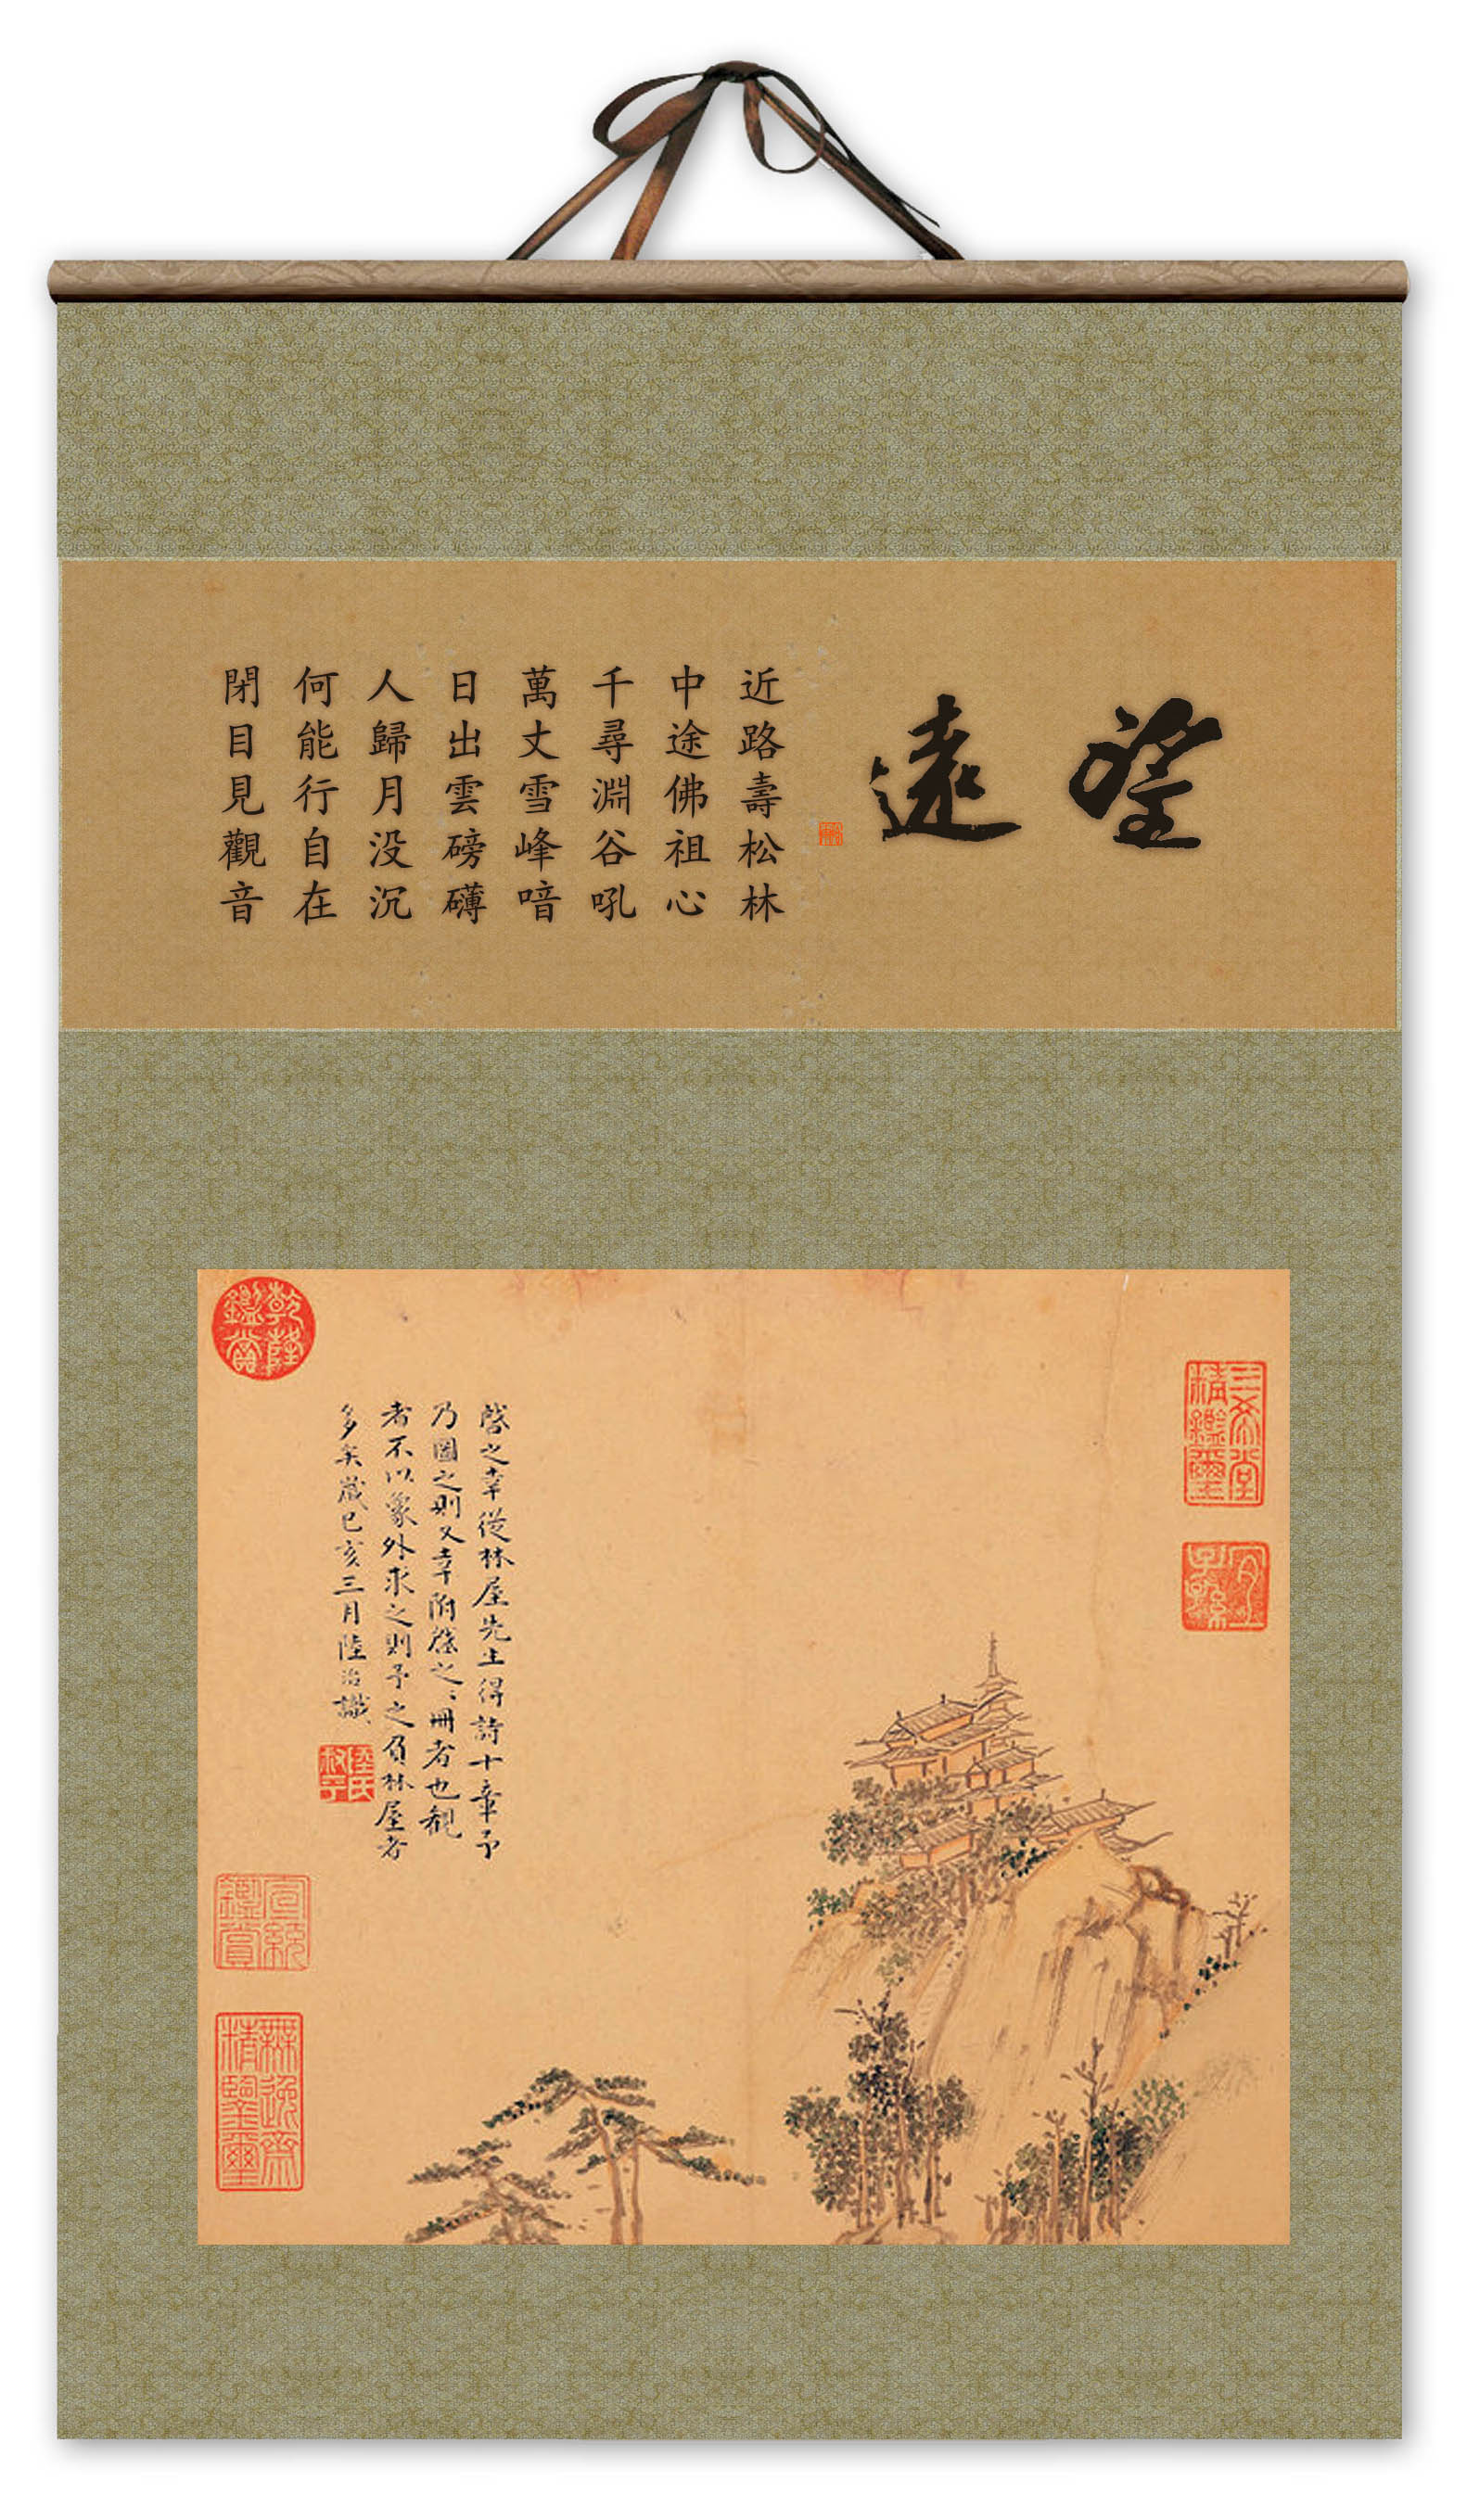 望遠
近路壽松林
中途佛祖心
千尋淵谷吼
萬丈雪峰喑
日出雲磅礴
人歸月没沉
何能行自在
閉目見觀音
三希堂精鑑璽
宜子孫
啓之幸從林屋先生得詩十章予
乃圖之則又幸附啓之〻冊者也觀
者不以象外求之則予之負林屋者
多矣歲己亥三月陸治識
陸氏叔平
乾隆鑑賞
宣統鑑賞
無逸齋精鑒璽